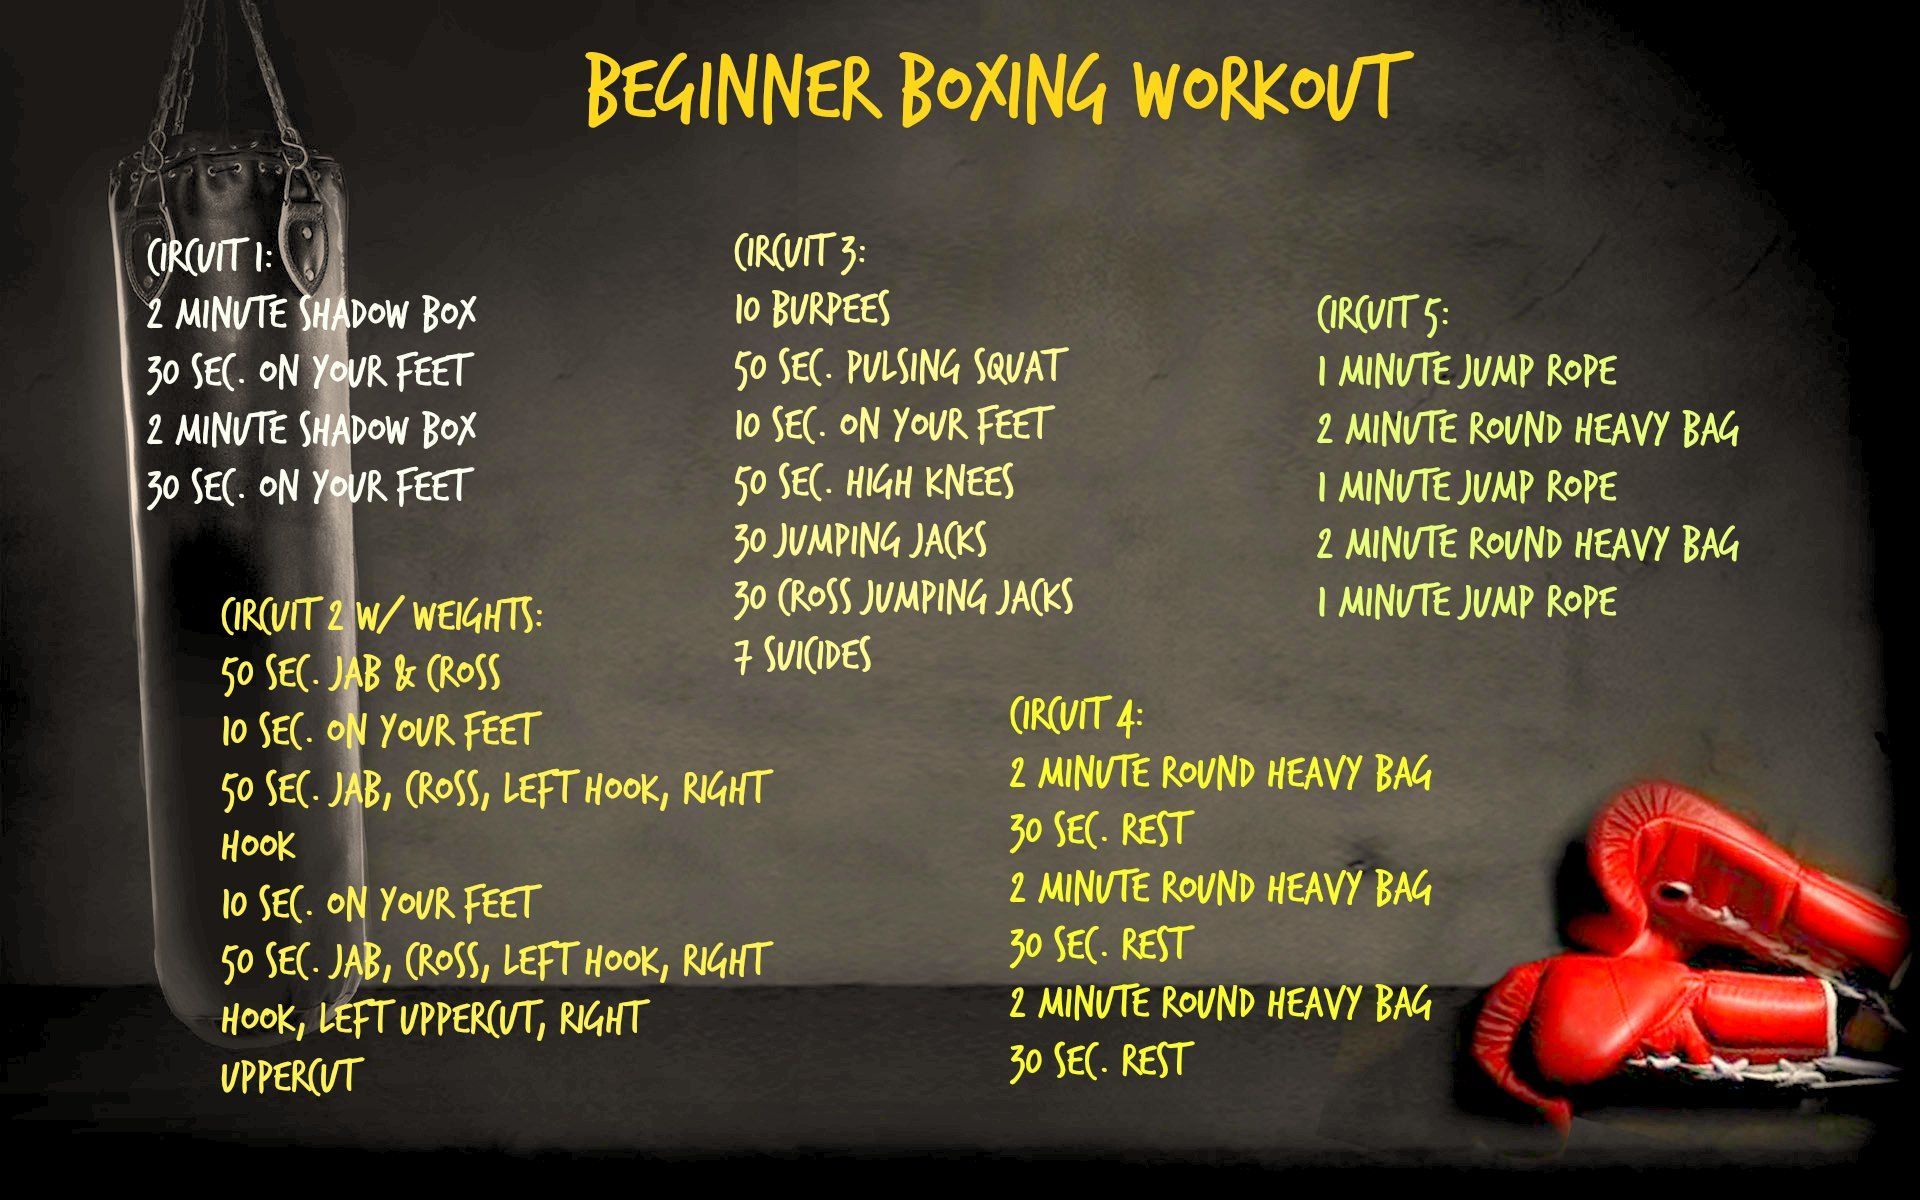 BEGINNER BOXING WORKOUT
CIRCUIT 1:
2 MINUTE SHADOW BOX
30 SEC. ON YOUR FEET
2 MINUTE SHADOW BOX
30 SEC. ON YOUR FEET
CIRCUIT 2 W/ WEIGHTS:
50 SEC. JAB & CROSS
10 SEC. ON YOUR FEET
50 SEC. JAB, CROSS, LEFT HOOK, RIGHT
HOOK
10 SEC. ON YOUR FEET
50 SEC. JAB, CROSS, LEFT HOOK, RIGHT
HOOK, LEFT UPPERCUT, RIGHT
UPPERCUT
CIRCUIT 3:
10 BURPEES
50 SEC. PULSING SQUAT
10 SEC. ON YOUR FEET
50 SEC. HIGH KNEES
30 JUMPING JACKS
30 CROSS JUMPING JACKS
7 SUICIDES
CIRCUIT 4:
2 MINUTE ROUND HEAVY BAG
30 SEC. REST
2 MINUTE ROUND HEAVY BAG
30 SEC. REST
2 MINUTE ROUND HEAVY BAG
30 SEC. REST
CIRCUIT 5:
1 MINUTE JUMP ROPE
2 MINUTE ROUND HEAVY BAG
1 MINUTE JUMP ROPE
2 MINUTE ROUND HEAVY BAG
1 MINUTE JUMP ROPE